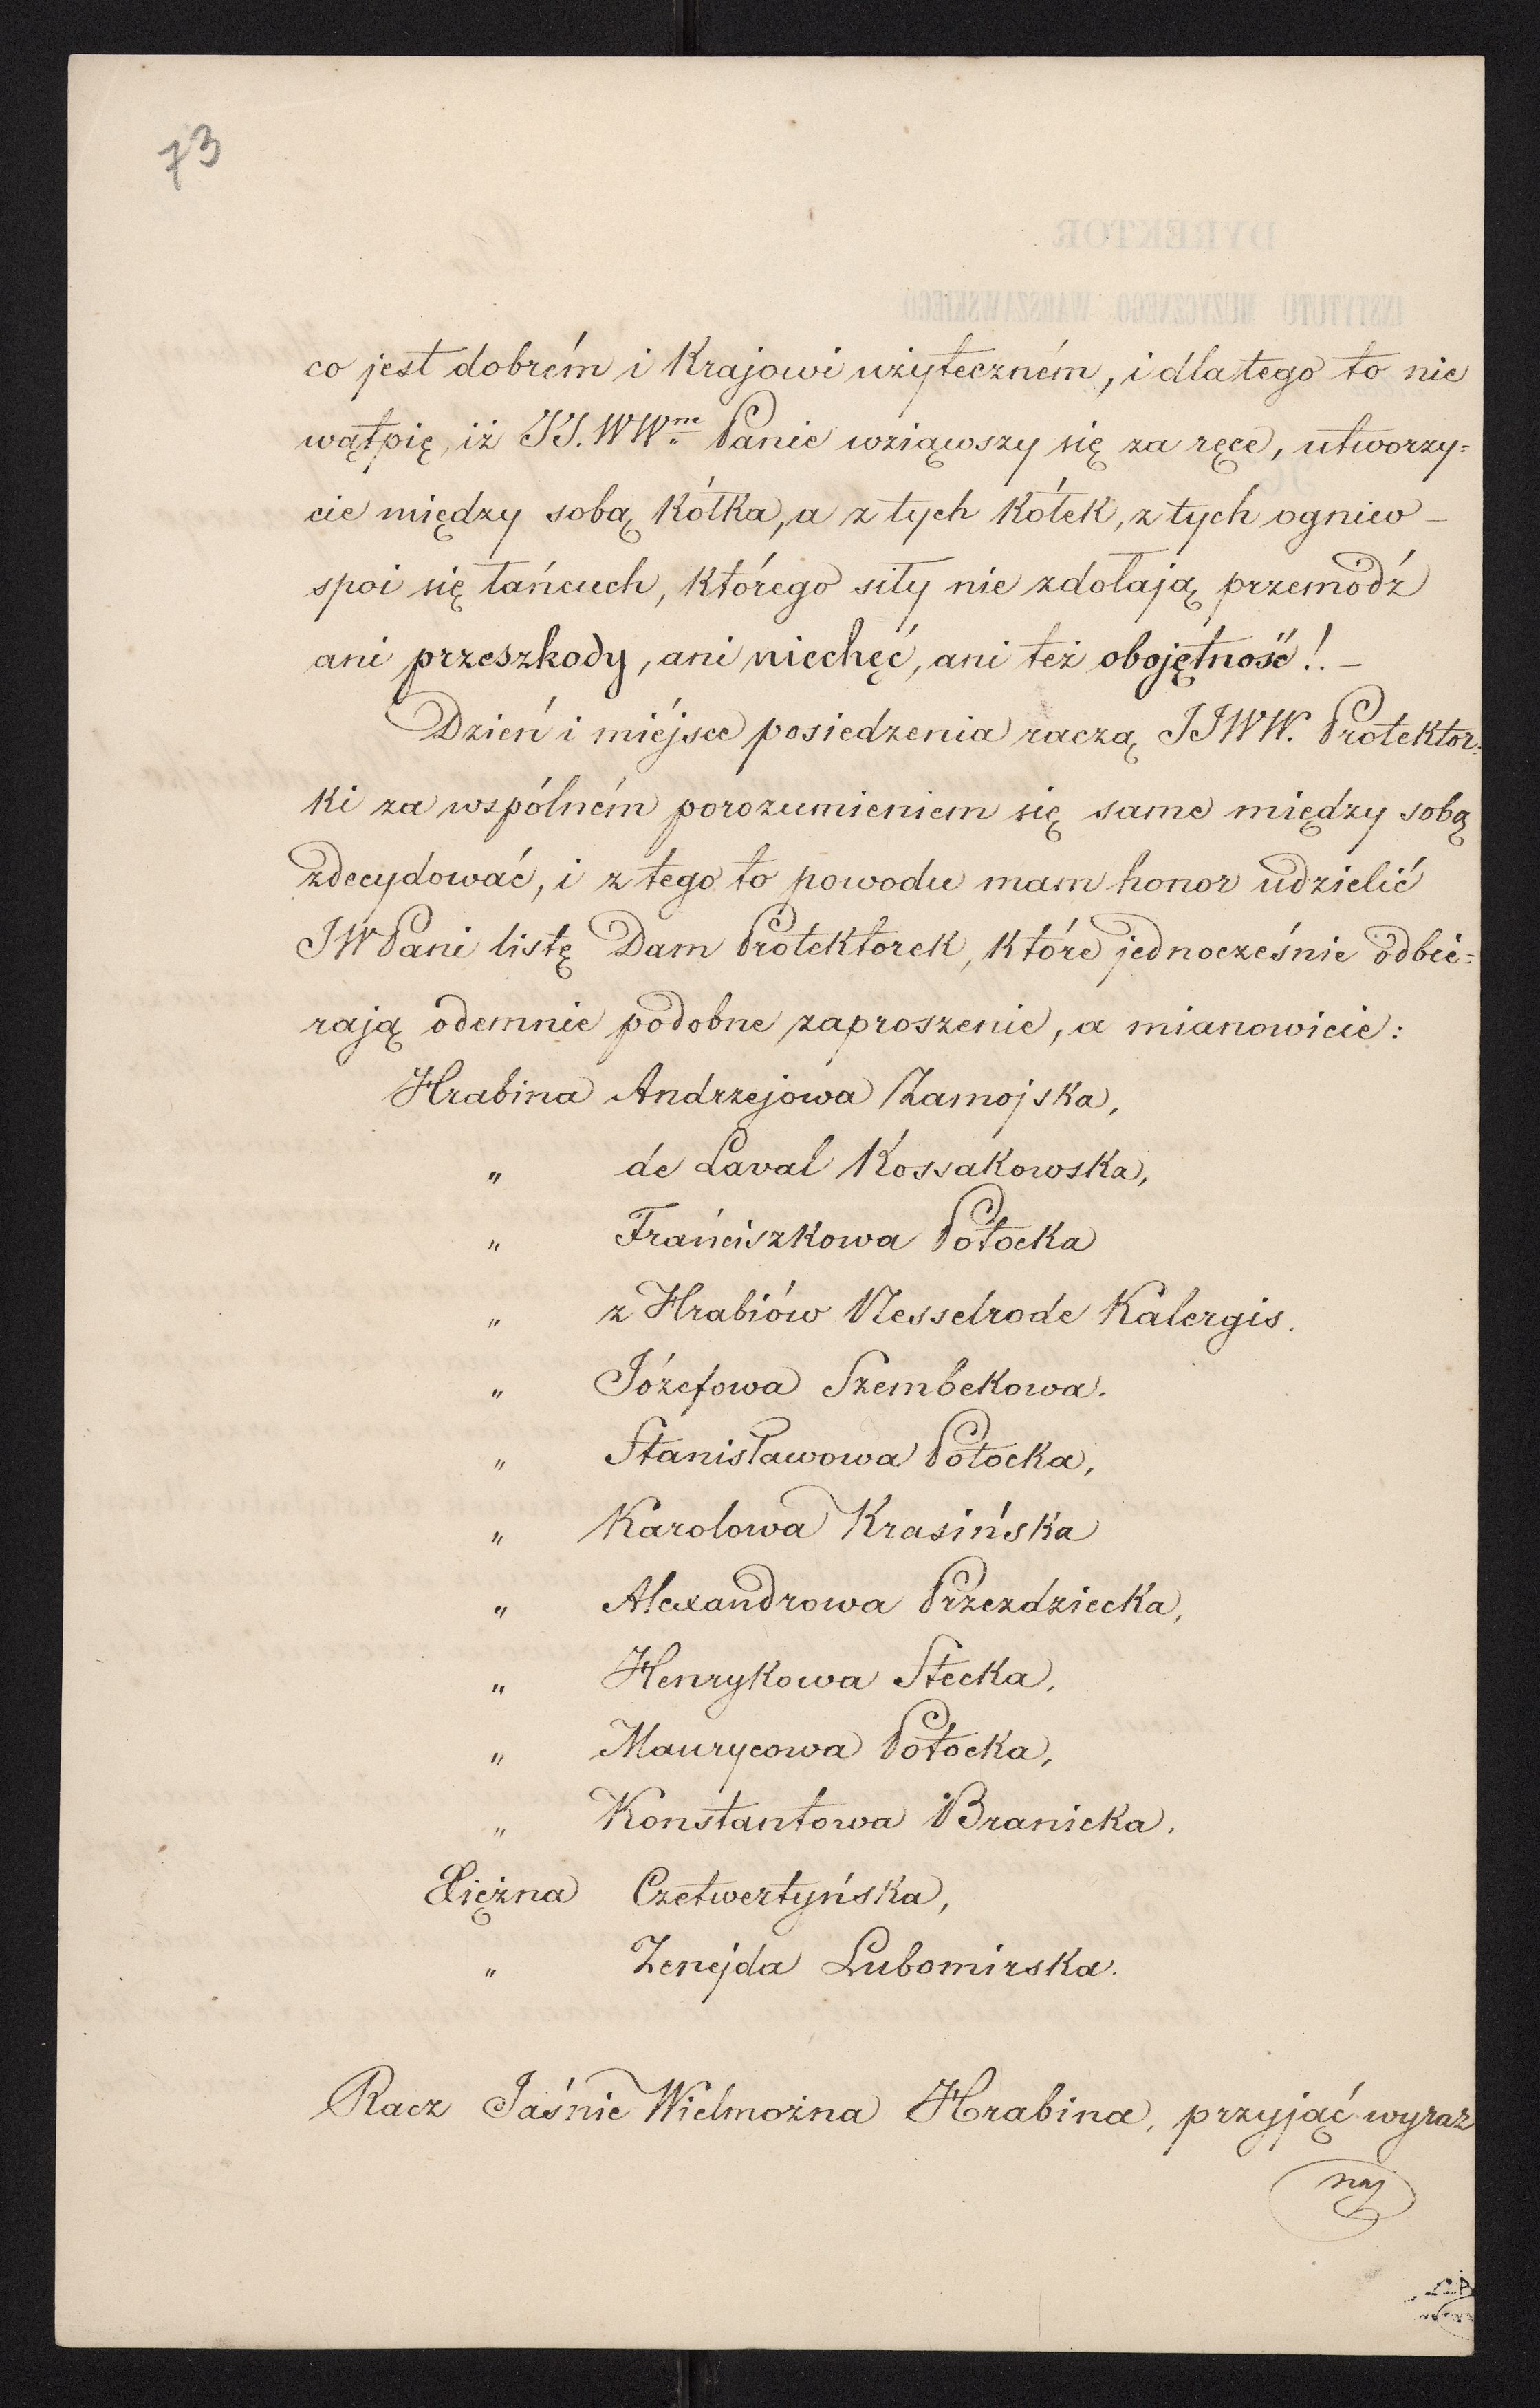 73
DYREKTOR
INSTYTUTU MUZYCZNEGO WARSZAWSKIEGO
co jest dobrém i Krajowi użyteczném, i dla tego to nie
wątpię, iż JJ. WWne Panie wziąwszy się za ręce, utworzy=
cie między sobą Kółka, a z tych Kółek, z tych ogniw –
spoi się łańcuch, którego siły nie zdołają przemódź
ani przeszkody, ani niechęć, ani też obojętność!. –
Dzień i miéjsce posiedzenia raczą JJWW. Protektor=
ki za wspólném porozumieniem się same między sobą
zdecydować, i z tego to powodu mam honor udzielić
JWPani listę Dam Protektorek, które jednocześnie odbie=
rają odemnie podobne zaproszenie, a mianowicie:
Hrabina Andrzejowa Zamojska,
" de Laval Kossakowska,
" Franciszkowa Potocka
" z Hrabiów Nesselrode Kalergis.
" Józefowa Szembekowa.
" Stanisławowa Potocka,
" Karolowa Krasińska
" Alexandrowa Przezdziecka,
" Henrykowa Stecka,
" Maurycowa Potocka,
" Konstantowa Branicka.
Xiężna Czetwertyńska,
" Zenejda Lubomirska.
Racz Jaśnie Wielmożna Hrabina, przyjąć wyraz
naj